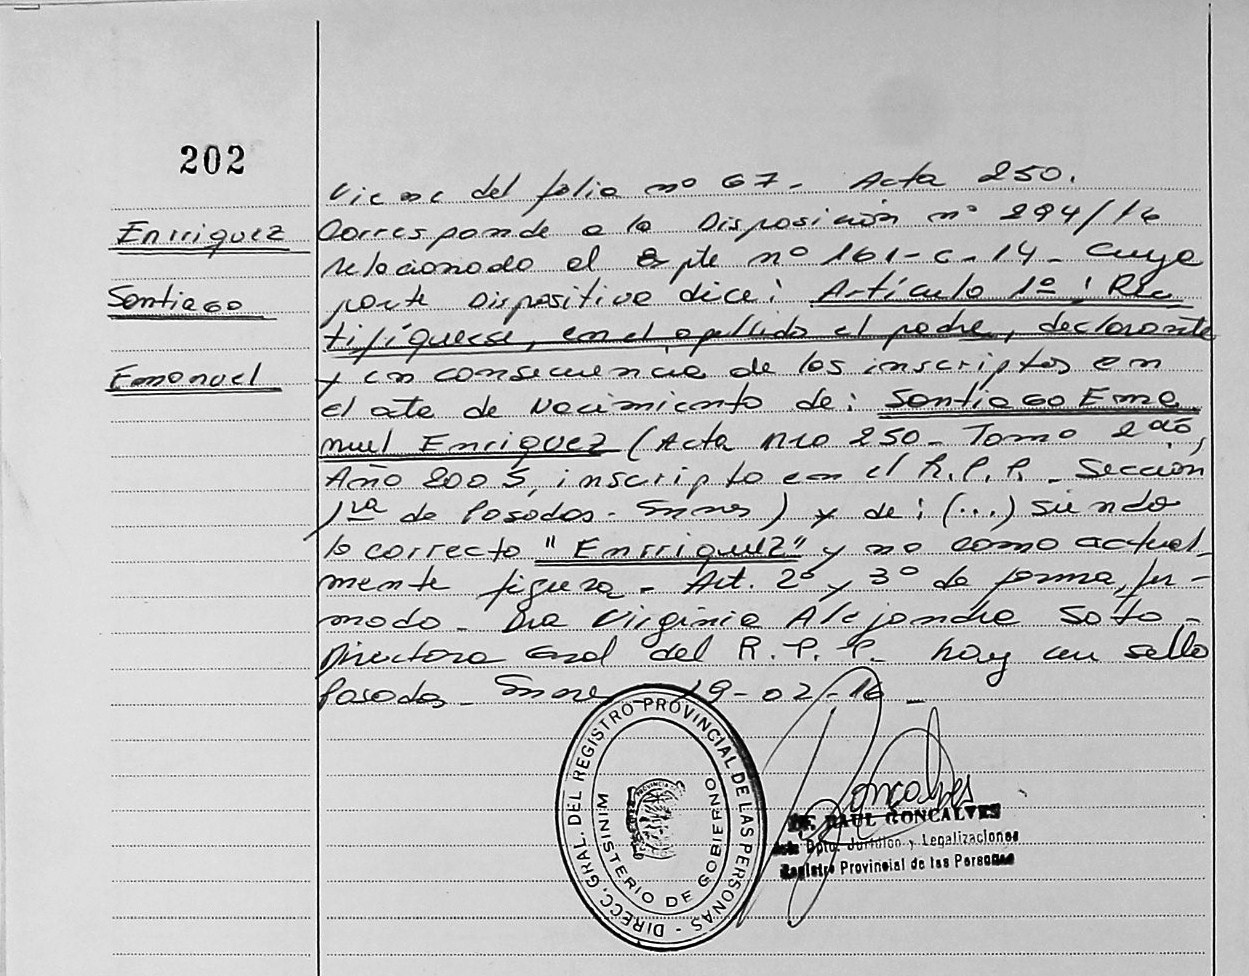 202
Viene del folio nº 67. Acta 250.
Enrriquez
Corresponde a la Disposición nº 294/16
relacionado el Expte nº 161-C-14. Cuya
Santiago
parte Dispositiva dice: Artículo 1º: Rec
tifíquese, en el apellido el padre, declarante
Emanuel
y en consecuencia de los inscriptos en
el acta de Nacimiento de: Santiago Ema
nuel Enriquez (Acta Nro 250 - Tomo 2do,
Año 2005, inscripto en el R.P.P. Sección
1ra de Posadas - Mnes) y de: (...) siendo
lo correcto "Enrriquez" y no como actual-
mente figura - Art. 2º y 3º de forma, fir-
mado - Dra Virginia Alejandra Soto -
Directora Gral del R.P.P. hay un sello
Posadas - Mnes 19-02-16
DIRECC. GRAL. DEL REGISTRO PROVINCIAL DE LAS PERSONAS -
MINISTERIO DE GOBIERNO
Goncalves
Dr. RAUL GONCALVES
Jefe Dpto. Jurídico y Legalizaciones
Registro Provincial de las Personas